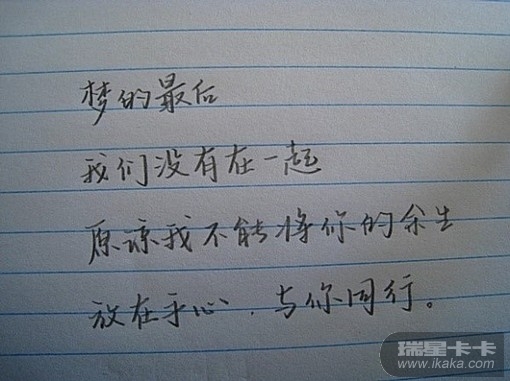 梦的最后
我们没有在一起
原谅我不能将你的余生
放在手心、与你同行。
瑞星卡卡
www.ikaka.com